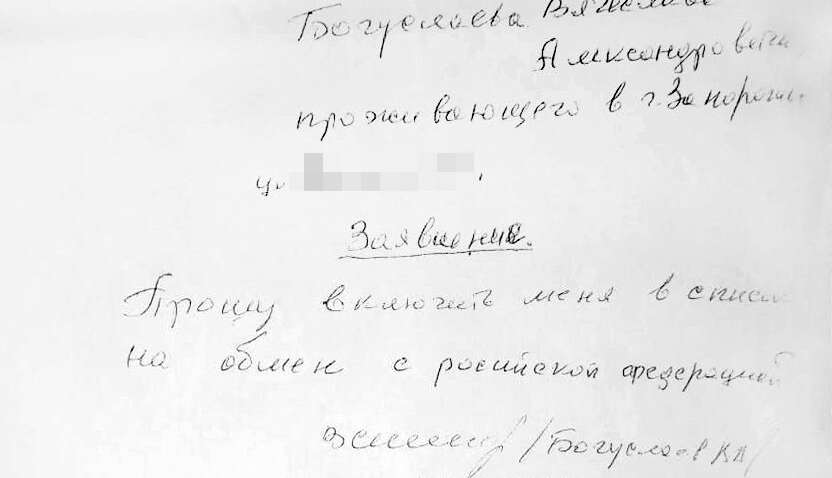 Богуслаева Вячеслава
Александрович
проживающего в г. Запорож
ул
Заявление.
Прошу включить меня в список
на обмен с росийской федерацией
/Богуслаев ВА/